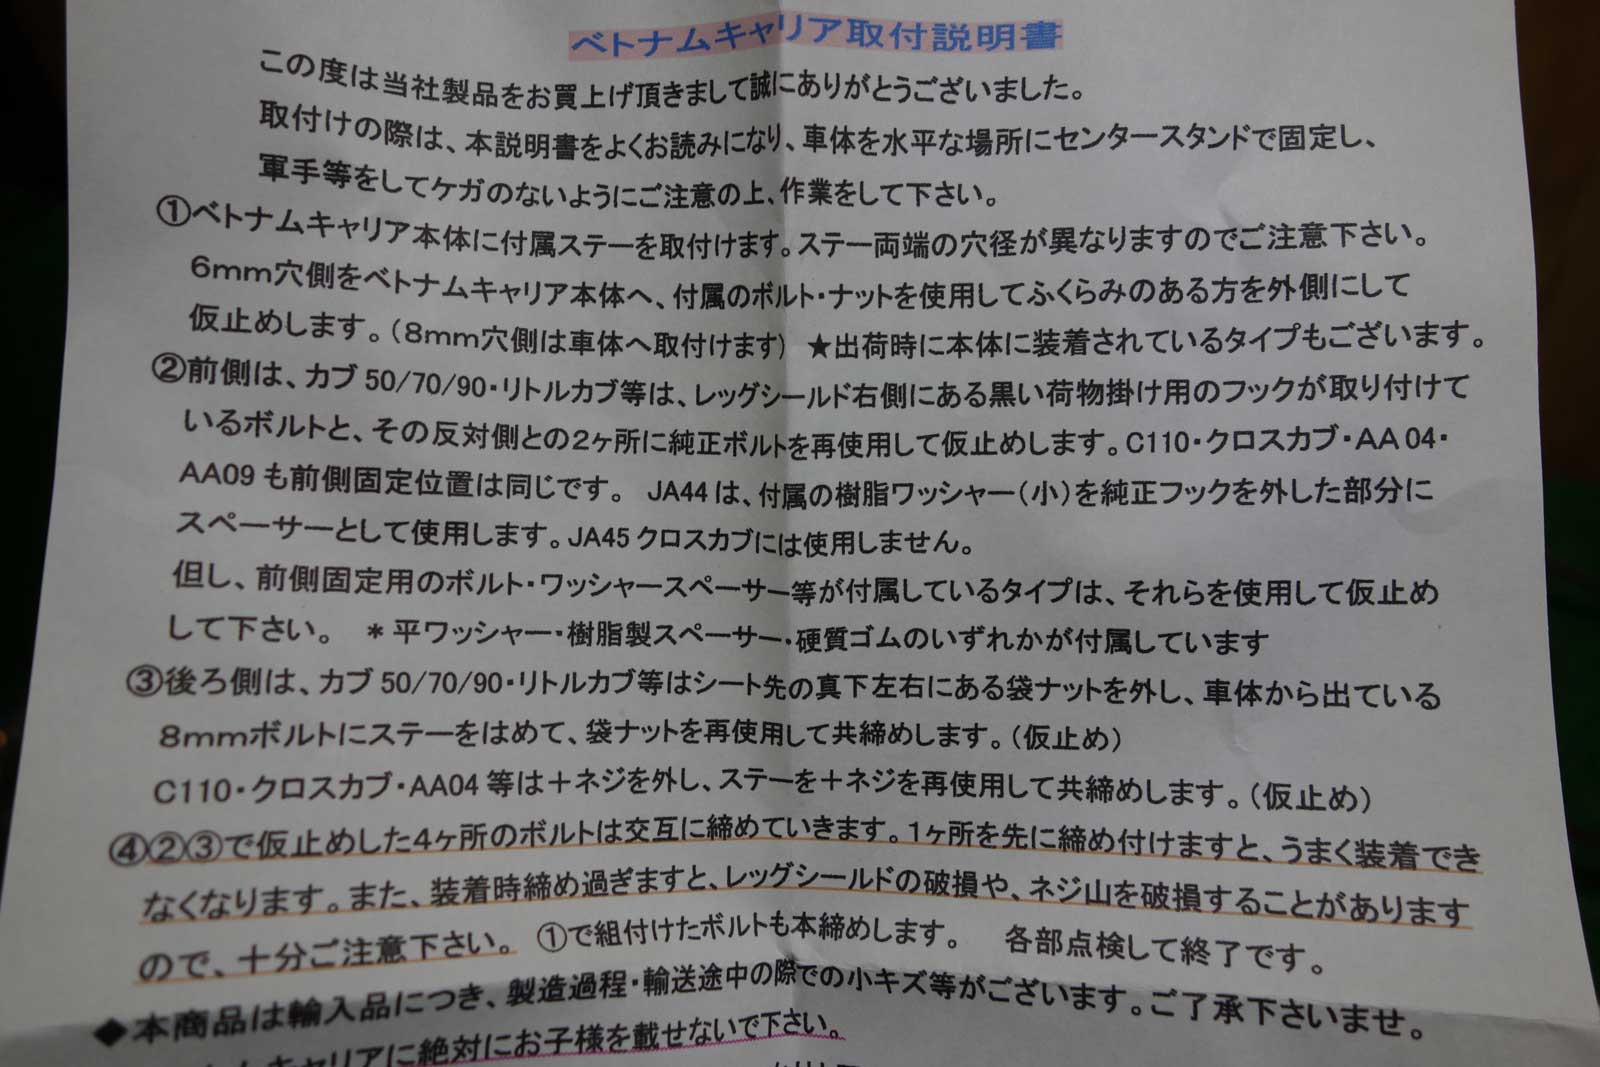 ベトナムキャリア取付説明書
この度は当社製品をお買上げ頂きまして誠にありがとうございました。
取付けの際は、本説明書をよくお読みになり、車体を水平な場所にセンタースタンドで固定し、
軍手等をしてケガのないようにご注意の上、作業をして下さい。
①ベトナムキャリア本体に付属ステーを取付けます。ステー両端の穴径が異なりますのでご注意下さい。
6mm穴側をベトナムキャリア本体へ、付属のボルト・ナットを使用してふくらみのある方を外側にして
仮止めします。（8mm穴側は車体へ取付けます） ★出荷時に本体に装着されているタイプもございます。
②前側は、カブ50/70/90・リトルカブ等は、レッグシールド右側にある黒い荷物掛け用のフックが取り付けて
いるボルトと、その反対側との2ヶ所に純正ボルトを再使用して仮止めします。C110・クロスカブ・AA04・
AA09も前側固定位置は同じです。 JA44は、付属の樹脂ワッシャー（小）を純正フックを外した部分に
スペーサーとして使用します。JA45クロスカブには使用しません。
但し、前側固定用のボルト・ワッシャースペーサー等が付属しているタイプは、それらを使用して仮止め
して下さい。 ＊平ワッシャー・樹脂製スペーサー・硬質ゴムのいずれかが付属しています
③後ろ側は、カブ50/70/90・リトルカブ等はシート先の真下左右にある袋ナットを外し、車体から出ている
8mmボルトにステーをはめて、袋ナットを再使用して共締めします。（仮止め）
C110・クロスカブ・AA04等は＋ネジを外し、ステーを＋ネジを再使用して共締めします。（仮止め）
④②③で仮止めした4ヶ所のボルトは交互に締めていきます。1ヶ所を先に締め付けますと、うまく装着でき
なくなります。また、装着時締め過ぎますと、レッグシールドの破損や、ネジ山を破損することがあります
ので、十分ご注意下さい。 ①で組付けたボルトも本締めします。 各部点検して終了です。
◆本商品は輸入品につき、製造過程・輸送途中の際での小キズ等がございます。ご了承下さいませ。
ムキャリアに絶対にお子様を載せないで下さい。